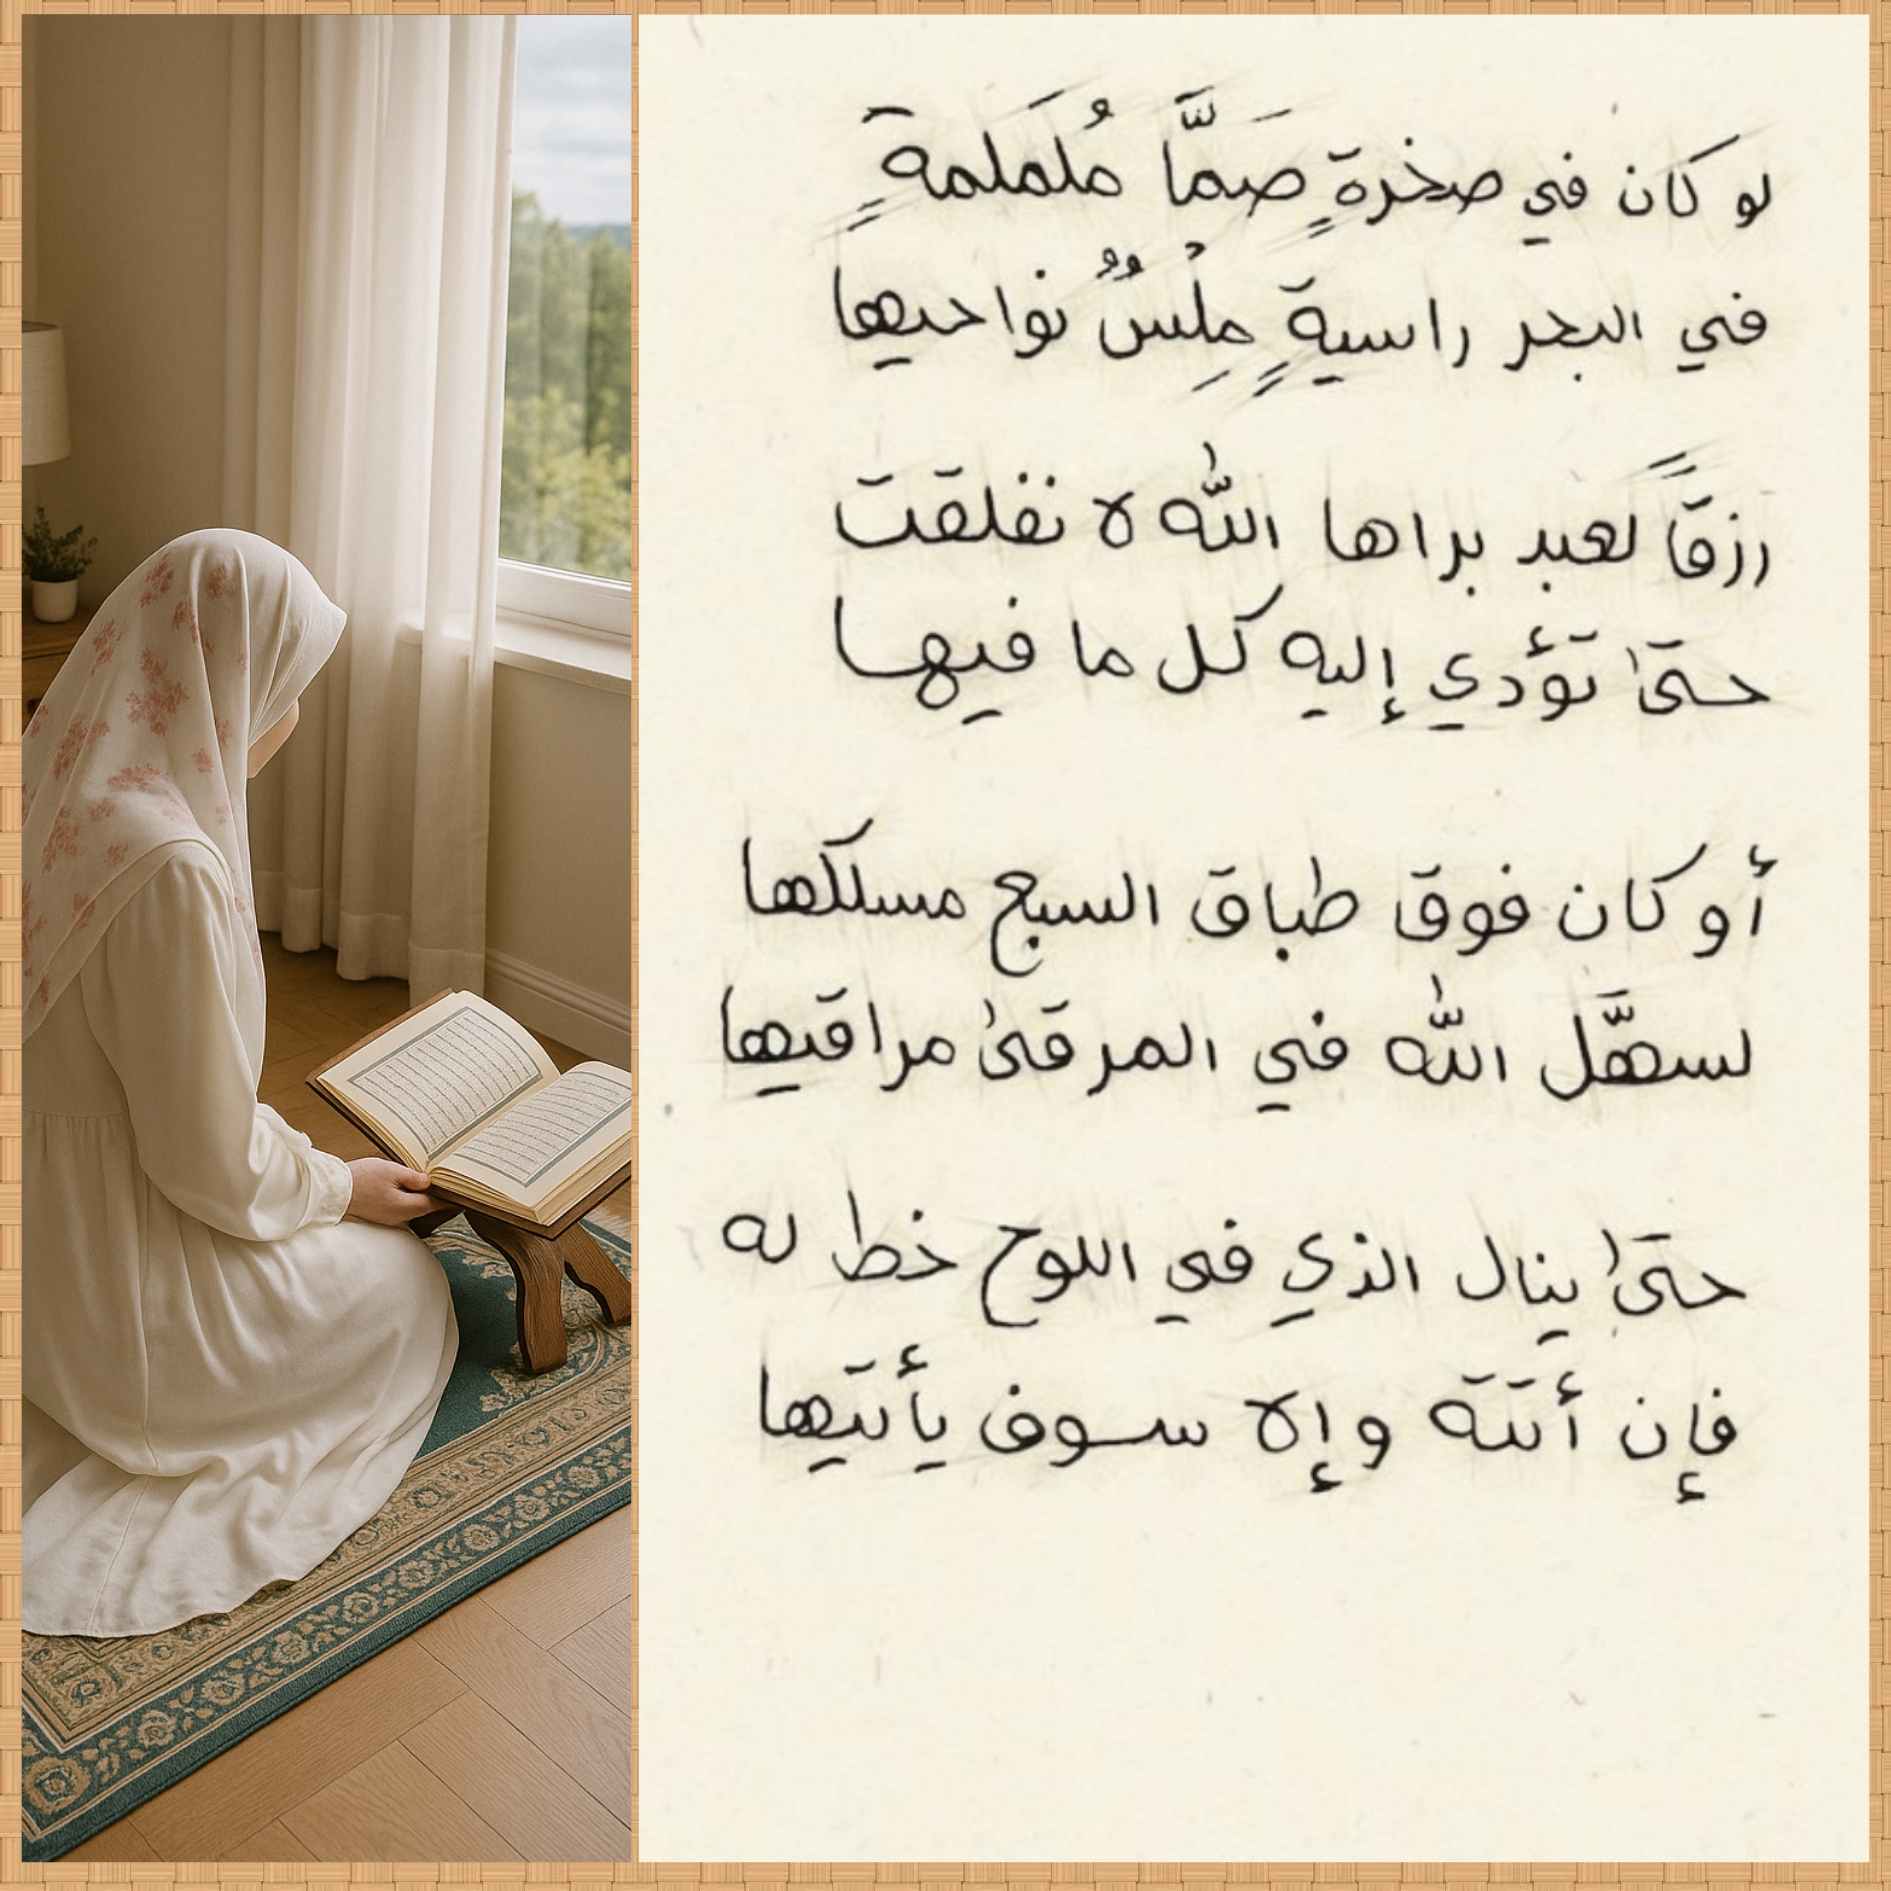 لو كان في صخرةٍ صَمَّا مُلَملمةٍ
في البحر راسيةٍ مِلْسٌ نواحيها
رزقاً لعبد براها الله لا نفلقت
حتىٰ تؤدي إليه كل ما فيها
أو كان فوق طباق السبع مسلكها
لسهَّل الله في المرقىٰ مراقيها
حتىٰ ينال الذي في اللوح خط له
فإن أتته وإلا سوف يأتيها